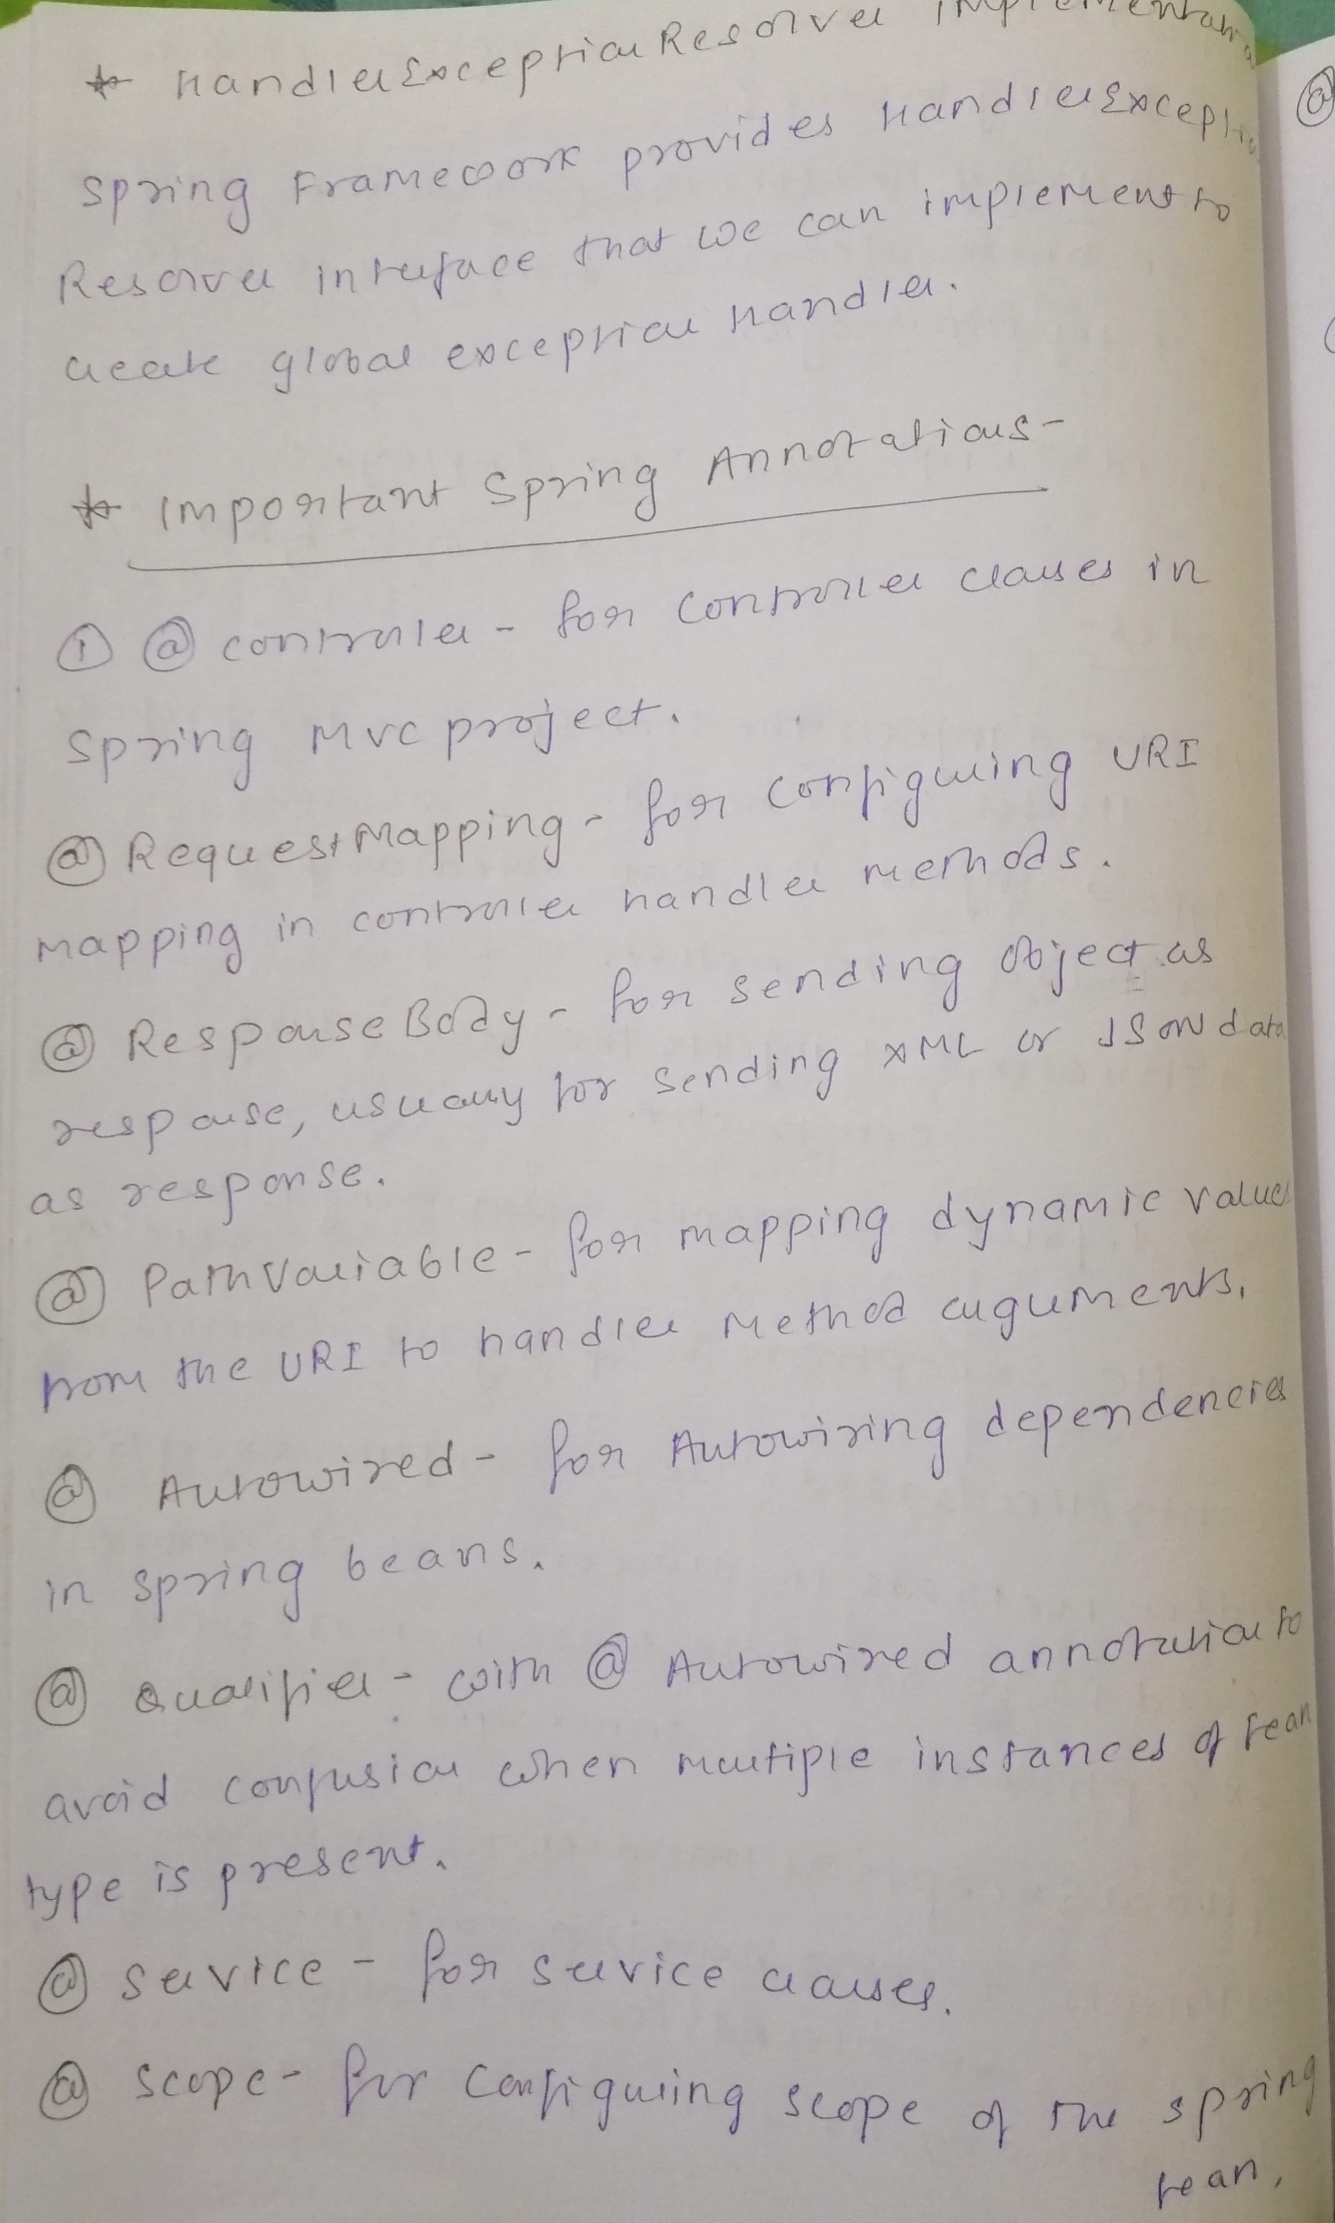 * HandlerExceptionResolver Implementation
Spring Framework provides HandlerExceptio
Resolver interface that we can implement to
create global exception handler.
* Important Spring Annotations -
① @ controller - for controller classes in
Spring MVC project.
@ RequestMapping - for configuring URI
mapping in controller handler methods.
@ ResponseBody - for sending Object as
response, usually for sending XML or JSON data
as response.
@ PathVariable - for mapping dynamic values
from the URI to handler method arguments.
@ Autowired - for Autowiring dependencies
in spring beans.
@ Qualifier - with @ Autowired annotation to
avoid confusion when multiple instances of bean
type is present.
@ Service - for service classes.
@ Scope - for configuring scope of the spring
bean.